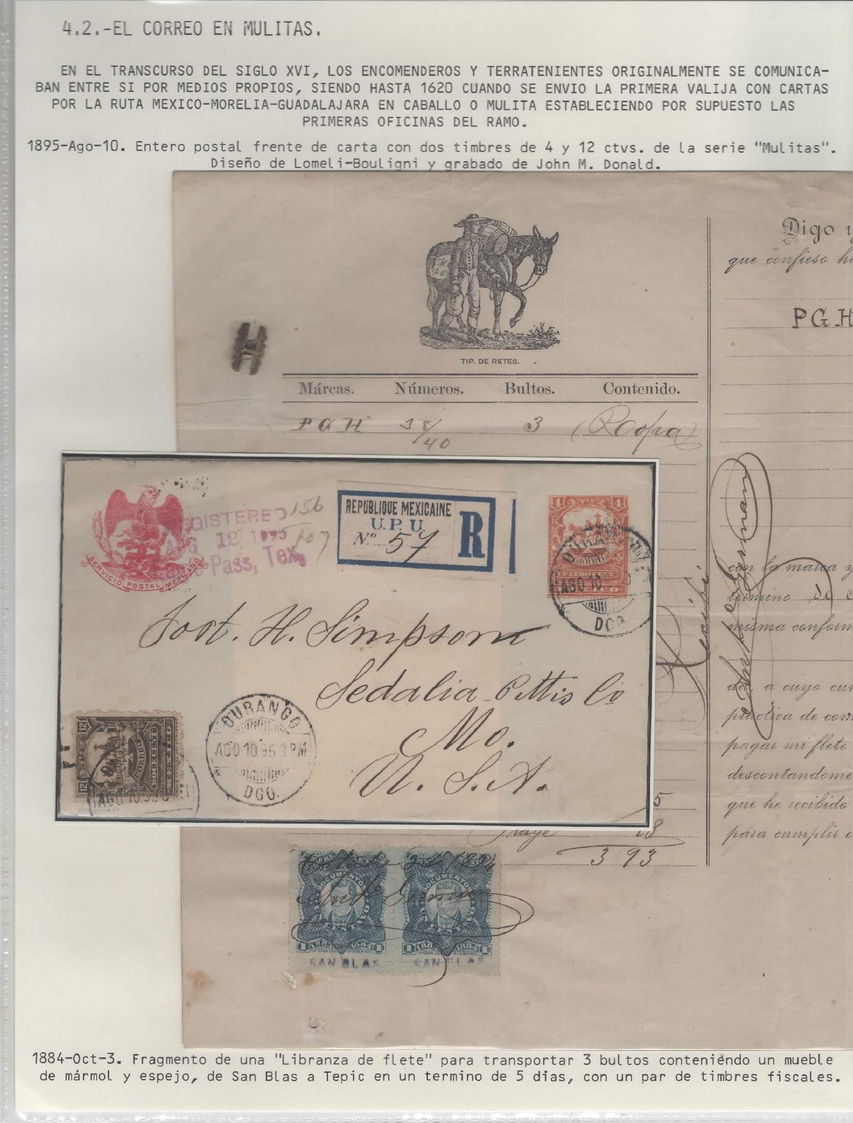 4.2.-EL CORREO EN MULITAS.
EN EL TRANSCURSO DEL SIGLO XVI, LOS ENCOMENDEROS Y TERRATENIENTES ORIGINALMENTE SE COMUNICA-
BAN ENTRE SI POR MEDIOS PROPIOS, SIENDO HASTA 1620 CUANDO SE ENVIO LA PRIMERA VALIJA CON CARTAS
POR LA RUTA MEXICO-MORELIA-GUADALAJARA EN CABALLO O MULITA ESTABLECIENDO POR SUPUESTO LAS
PRIMERAS OFICINAS DEL RAMO.
1895-Ago-10. Entero postal frente de carta con dos timbres de 4 y 12 ctvs. de la serie "Mulitas".
Diseño de Lomelí-Bouligni y grabado de John M. Donald.
TIP. DE RETES.
Márcas. Números. Bultos. Contenido.
P G H 38/40 3 (Ropa)
Digo y
que confieso h
P G H
con la marca y
termino de
misma conform
da, a cuyo cum
práctica de com
pagar mi flete
descontandome
que he recibido
para cumplir
Recibí
5
8
3 93
SERVICIO POSTAL MEXICANO
GISTERED
12 1895
Pass, Tex.
156
107
REPUBLIQUE MEXICAINE
U.P.U.
Nº 57
R
4 4
DURANGO
AGO 10
DGO.
Post. H. Simpson
Sedalia Pettis Co
Mo.
U. S. A.
12 12
DURANGO
AGO 10 95 3 PM
DGO.
AGO 10 95
DOCUMENTOS DOCUMENTOS
SAN BLAS SAN BLAS
1884-Oct-3. Fragmento de una "Libranza de flete" para transportar 3 bultos conteniéndo un mueble
de mármol y espejo, de San Blas a Tepic en un termino de 5 días, con un par de timbres fiscales.